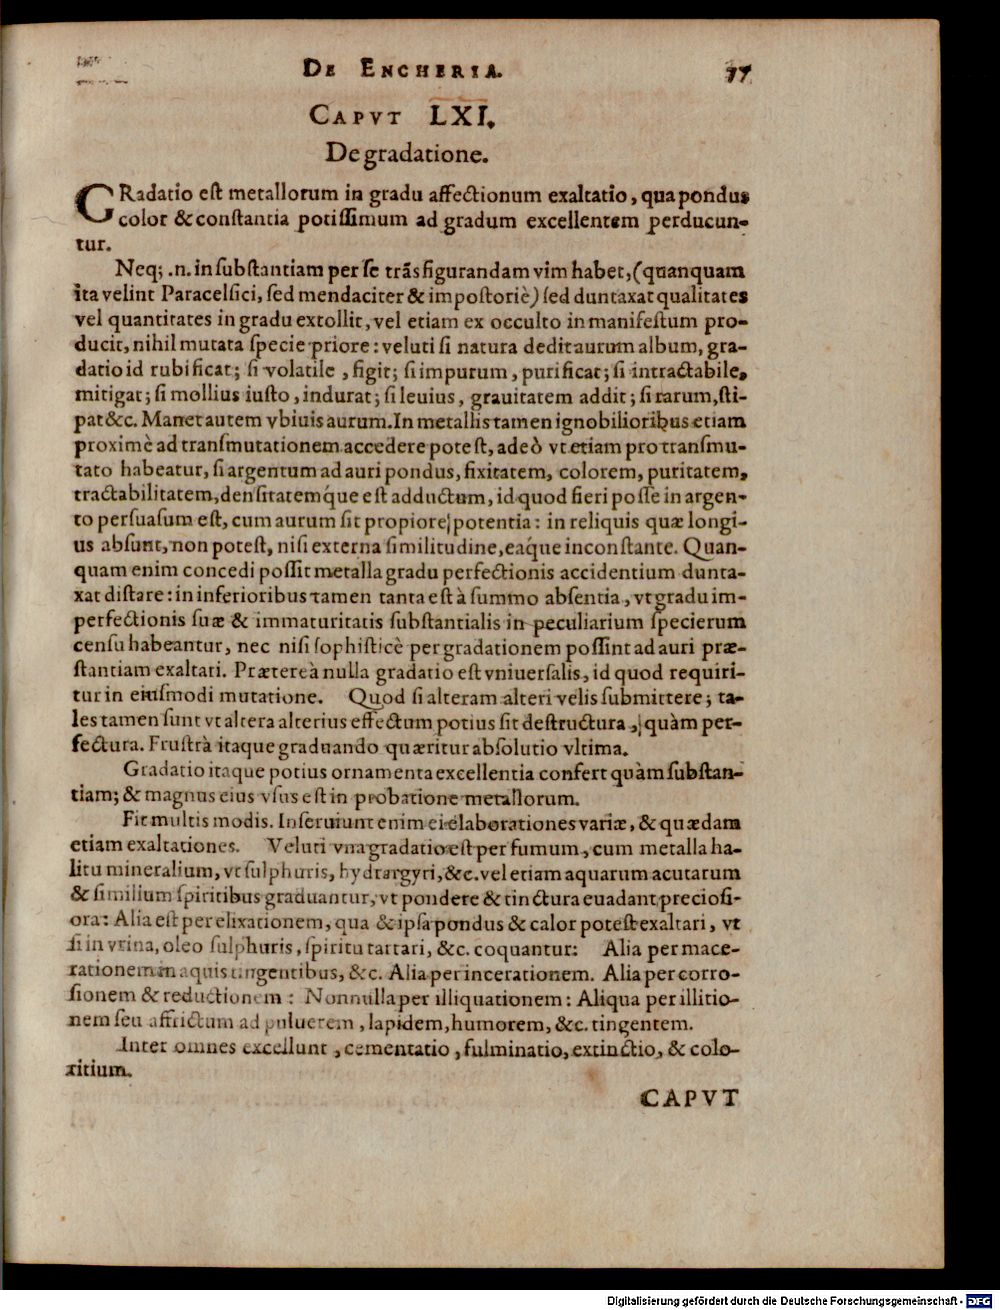 DE ENCHERIA. 77
CAPVT LXI.
De gradatione.
GRadatio est metallorum in gradu affectionum exaltatio, qua pondus
color & constantia potissimum ad gradum excellentem perducun-
tur.
Neq; .n. in substantiam per se trãsfigurandam vim habet, (quanquam
ita velint Paracelsici, sed mendaciter & impostoriè) sed duntaxat qualitates
vel quantitates in gradu extollit, vel etiam ex occulto in manifestum pro-
ducit, nihil mutata specie priore: veluti si natura dedit aurum album, gra-
datio id rubificat; si volatile, figit; si impurum, purificat; si intractabile,
mitigat; si mollius iusto, indurat; si leuius, grauitatem addit; si rarum, sti-
pat &c. Manet autem vbiuis aurum. In metallis tamen ignobilioribus etiam
proximè ad transmutationem accedere potest, adeò vt etiam pro transmu-
tato habeatur, si argentum ad auri pondus, fixitatem, colorem, puritatem,
tractabilitatem, densitatemque est adductum, id quod fieri posse in argen-
to persuasum est, cum aurum sit propiore potentia: in reliquis quæ longi-
us absunt, non potest, nisi externa similitudine, eaque inconstante. Quan-
quam enim concedi possit metalla gradu perfectionis accidentium dunta-
xat distare: in inferioribus tamen tanta est à summo absentia, vt gradu im-
perfectionis suæ & immaturitatis substantialis in peculiarium specierum
censu habeantur, nec nisi sophisticè per gradationem possint ad auri præ-
stantiam exaltari. Prætereà nulla gradatio est vniuersalis, id quod requiri-
tur in eiusmodi mutatione. Quod si alteram alteri velis submittere; ta-
les tamen sunt vt altera alterius effectum potius sit destructura, quàm per-
fectura. Frustrà itaque graduando quæritur absolutio vltima.
Gradatio itaque potius ornamenta excellentia confert quàm substan-
tiam; & magnus eius vsus est in probatione metallorum.
Fit multis modis. Inseruiunt enim ei elaborationes variæ, & quædam
etiam exaltationes. Veluti vna gradatio est per fumum, cum metalla ha-
litu mineralium, vt sulphuris, hydrargyri, &c. vel etiam aquarum acutarum
& similium spiritibus graduantur, vt pondere & tinctura euadant preciosi-
ora: Alia est per elixationem, qua & ipsa pondus & calor potest exaltari, vt
si in vrina, oleo sulphuris, spiritu tartari, &c. coquantur: Alia per mace-
rationem in aquis tingentibus, &c. Alia per incerationem. Alia per corro-
sionem & reductionem: Nonnulla per illiquationem: Aliqua per illitio-
nem seu affrictum ad puluerem, lapidem, humorem, &c. tingentem.
Inter omnes excellunt, cementatio, fulminatio, extinctio, & colo-
ritium.
CAPVT
Digitalisierung gefördert durch die Deutsche Forschungsgemeinschaft - DFG